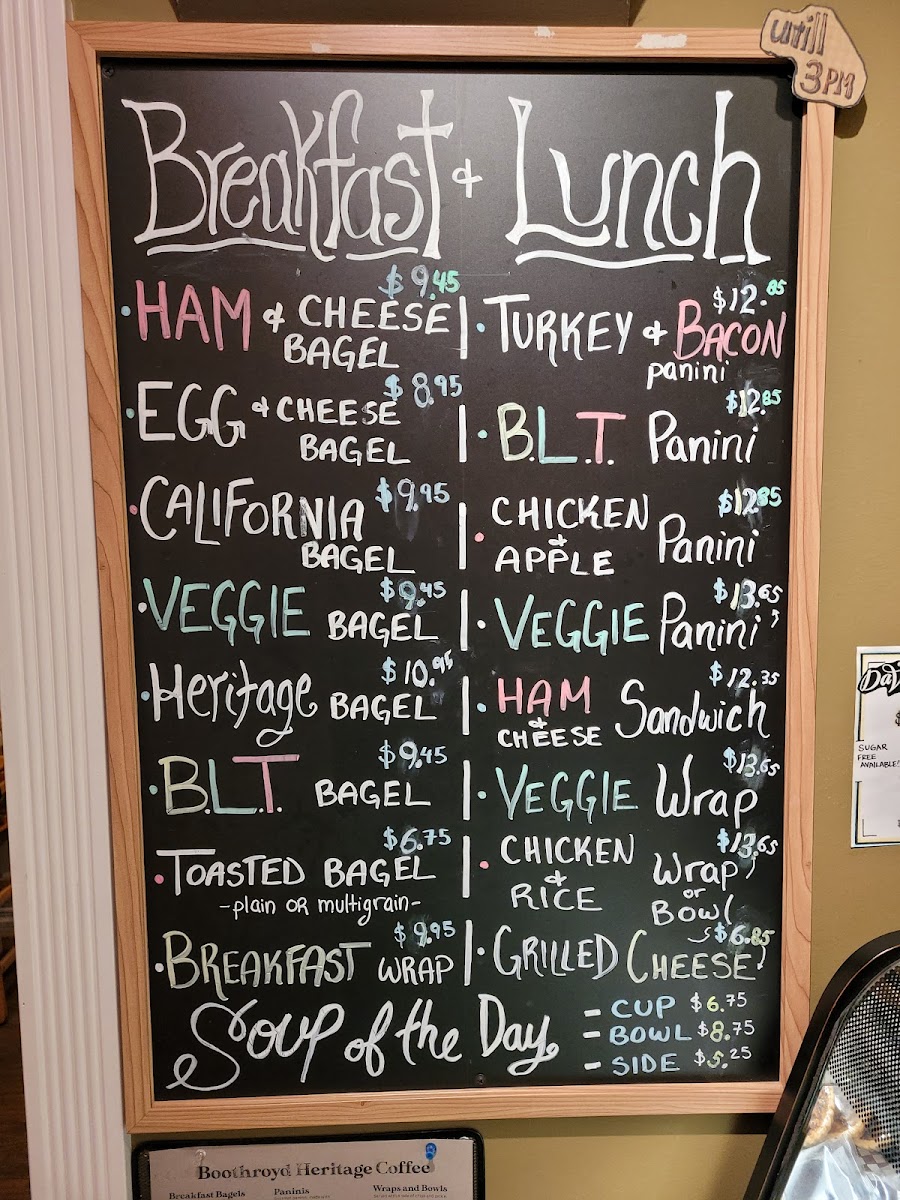 until
3PM
Breakfast & Lunch
$9.45
HAM & CHEESE
BAGEL
$8.95
EGG & CHEESE
BAGEL
$9.95
CALIFORNIA
BAGEL
$9.45
VEGGIE BAGEL
$10.95
Heritage BAGEL
$9.45
B.L.T. BAGEL
$6.75
TOASTED BAGEL
-plain OR multigrain-
$9.95
BREAKFAST WRAP
$12.85
TURKEY & BACON
panini
$12.85
B.L.T. Panini
$12.85
CHICKEN
&
APPLE
Panini
$13.65
VEGGIE Panini
$12.35
HAM
&
CHEESE
Sandwich
$13.65
VEGGIE Wrap
$13.65
CHICKEN
&
RICE
Wrap
or
Bowl
$6.85
GRILLED CHEESE
Soup of the Day
- CUP $6.75
- BOWL $8.75
- SIDE $5.25
SUGAR
FREE
AVAILABLE!
Boothroyd Heritage Coffee
Breakfast Bagels Paninis Wraps and Bowls